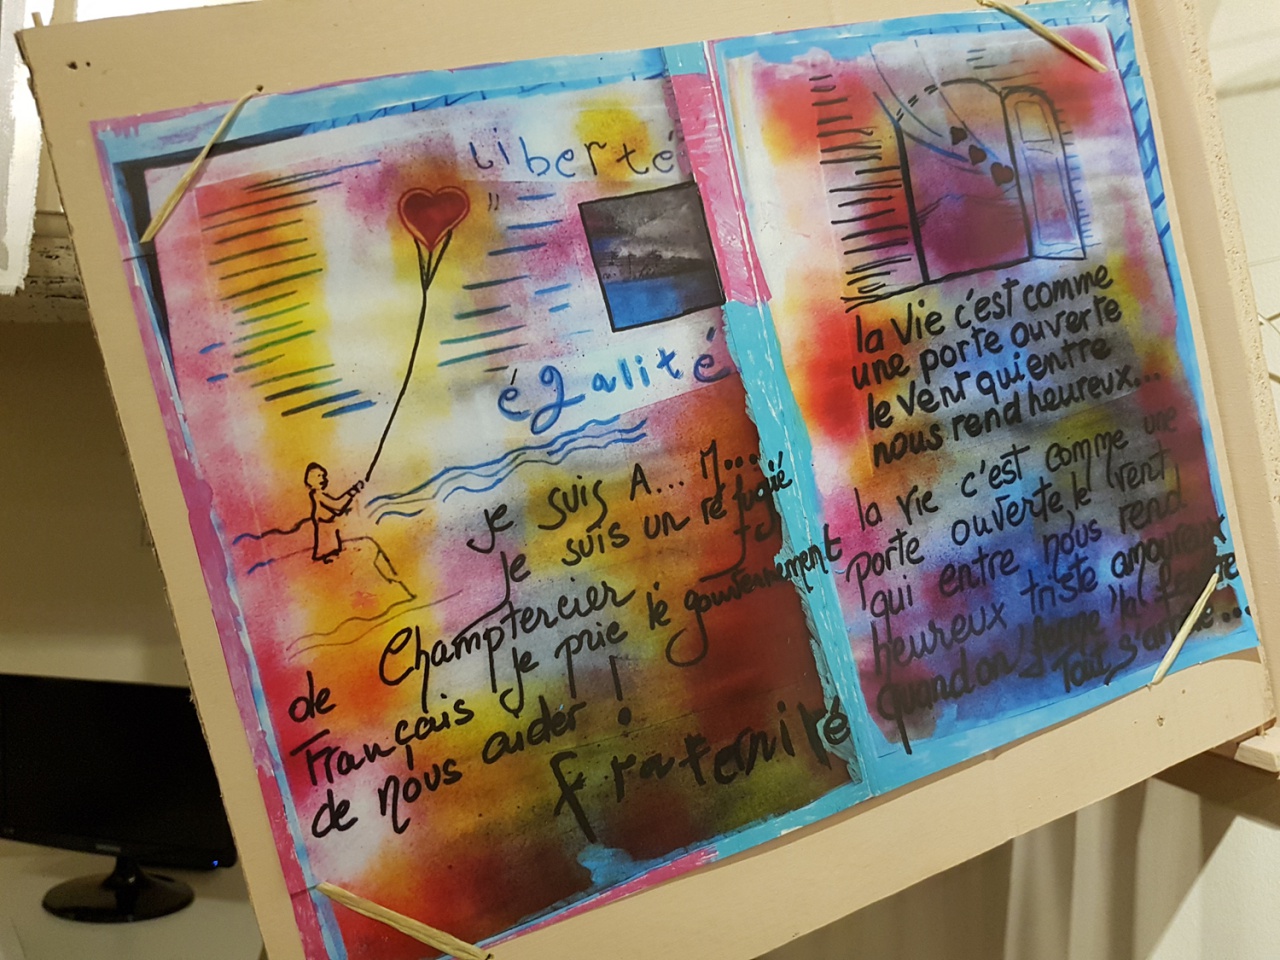 liberté
égalité
je suis A... M...
je suis un réfugié
de Champtercier
je prie le gouvernement
Français
de nous aider !
fraternité
la vie c'est comme
une porte ouverte
le vent qui entre
nous rend heureux...
la vie c'est comme une
porte ouverte, le vent
qui entre nous rend
heureux triste amoureux
quand on ferme la fenêtre
Tout s'arrête...